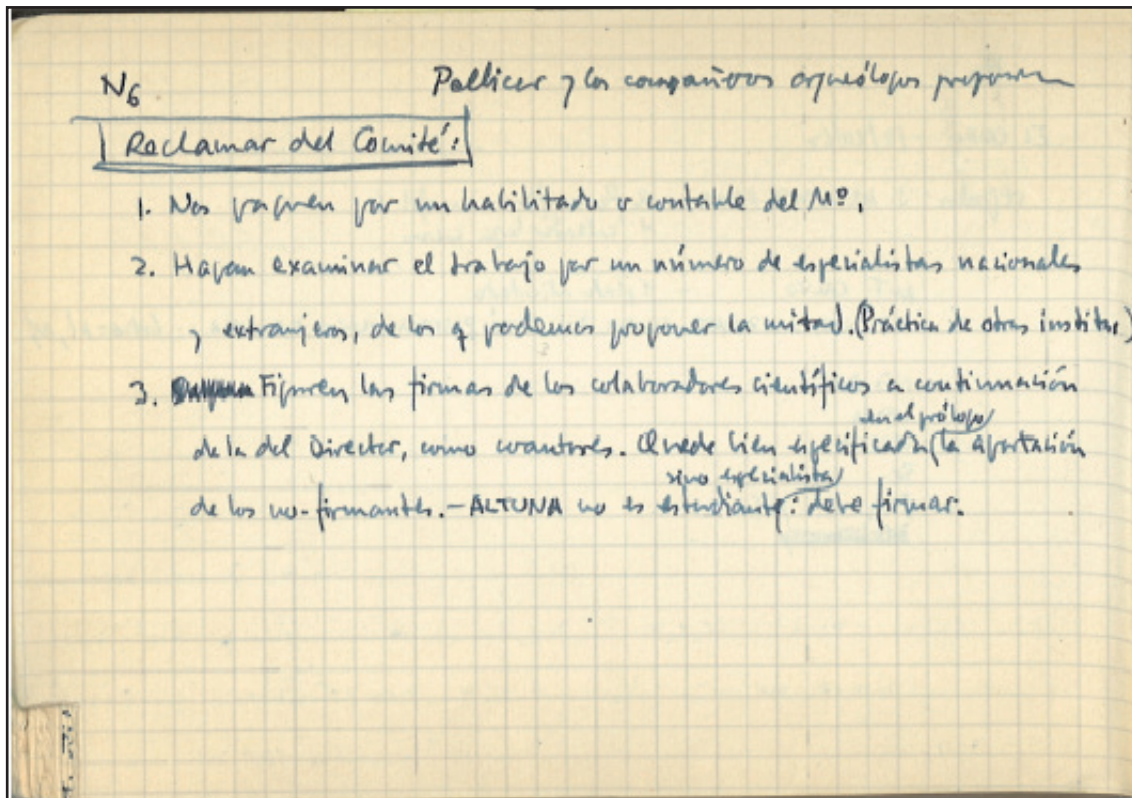 N6 Pellicer y los compañeros arqueólogos proponen
Reclamar del Comité:
1. Nos paguen por un habilitado o contable del Mº.
2. Hagan examinar el trabajo por un número de especialistas nacionales
y extranjeros, de los q podemos proponer la mitad. (Práctica de otras institus.)
3. Figuren las firmas de los colaboradores científicos a continuación
de la del Director, como coautores. Quede bien especificada (en el prólogo) la aportación
de los no-firmantes. - ALTUNA no es estudiante, sino especialista: debe firmar.